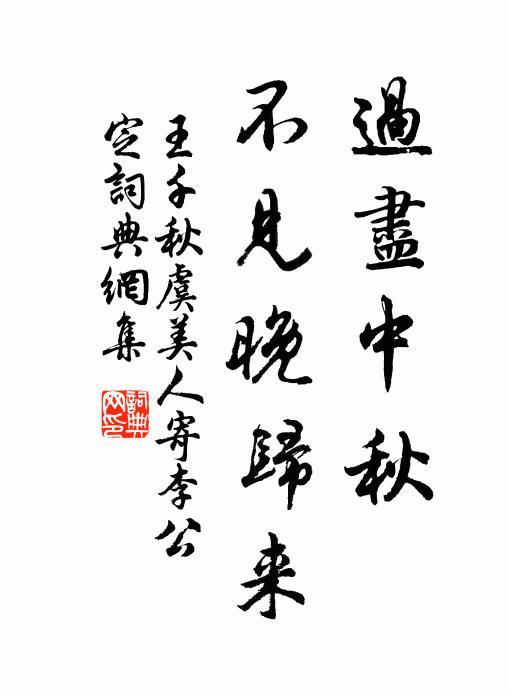 過盡中秋
不見晚歸来
王千秋虞美人寄李公
定詞典網集
詞典
网印